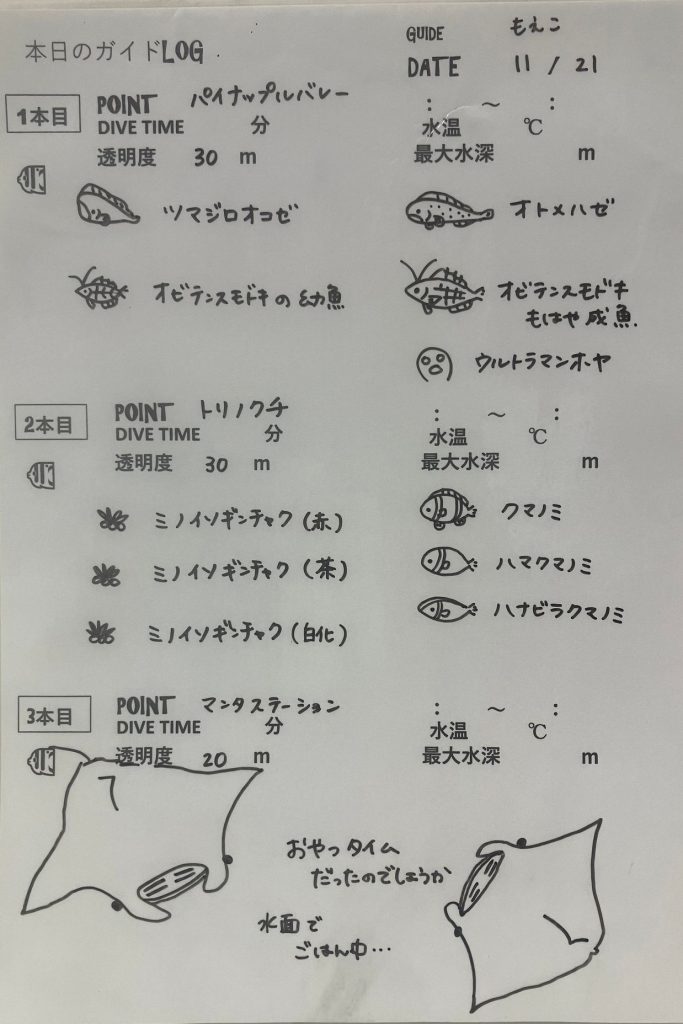 本日のガイドLOG
GUIDE もえこ
DATE 11 / 21
1本目
POINT パイナップルバレー
: ～ :
DIVE TIME 分
水温 ℃
透明度 30 m
最大水深 m
ツマジロオコゼ
オトメハゼ
オビテンスモドキの幼魚
オビテンスモドキ
もはや成魚.
ウルトラマンホヤ
2本目
POINT トリノクチ
: ～ :
DIVE TIME 分
水温 ℃
透明度 30 m
最大水深 m
ミノイソギンチャク(赤)
クマノミ
ミノイソギンチャク(茶)
ハマクマノミ
ミノイソギンチャク(白化)
ハナビラクマノミ
3本目
POINT マンタステーション
: ～ :
DIVE TIME 分
水温 ℃
透明度 20 m
最大水深 m
おやつタイム
だったのでしょうか
水面で
ごはん中…